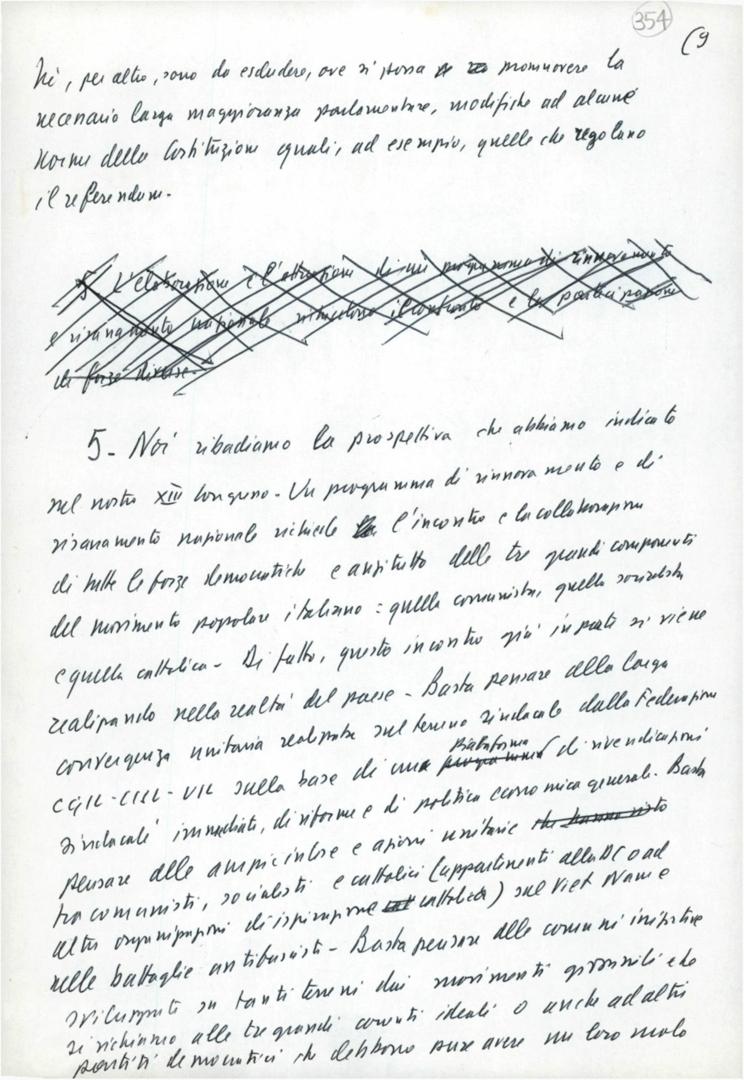 354
(9
Nè, per altro, sono da escludere, ove si possa promuovere la
necessaria larga maggioranza parlamentare, modifiche ad alcune
norme della Costituzione quali, ad esempio, quelle che regolano
il referendum.
5 L'elaborazione e l'attuazione di un programma di rinnovamento
e risanamento nazionale il contributo e la partecipazione
di forze diverse.
5- Noi ribadiamo la prospettiva che abbiamo indicato
nel nostro XIII Congresso - Un programma di rinnovamento e di
risanamento nazionale richiede l'incontro e la collaborazione
di tutte le forze democratiche e anzitutto delle tre grandi componenti
del movimento popolare italiano: quella comunista, quella socialista
e quella cattolica - Di fatto, questo incontro già in parte si viene
realizzando nella realtà del paese - Basta pensare alla larga
convergenza unitaria realizzata sul terreno sindacale dalla Federazione
CGIL-CISL-UIL sulla base di una piattaforma di rivendicazioni
sindacali immediate, di riforme e di politica economica generale. Basta
pensare alle ampie intese e azioni unitarie che hanno visto
tra comunisti, socialisti e cattolici (appartenenti alla DC o ad
altre organizzazioni di ispirazione cattolica) sul Viet Nam e
nelle battaglie antifasciste - Basta pensare alle comuni iniziative
sviluppate su tanti terreni dai movimenti giovanili che
si richiamano alle tre grandi correnti ideali o anche ad altri
partiti democratici che debbono pure avere un loro ruolo